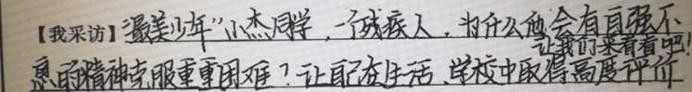 【我采访】“最美少年”小杰同学，一个残疾人，为什么他会有自强不
让我们来看看吧!
息的精神克服重重困难？让自己在生活、学校中取得高度评价